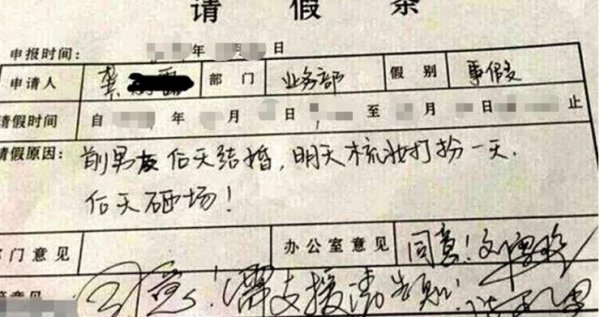 请假条
申报时间： 年 日
申请人 龚 部门 业务部 假别 事假
请假时间 自 年 月 日 至 月 日 止
请假原因： 前男友后天结婚，明天梳妆打扮一天.
后天砸场！
部门意见 办公室意见 同意！
同意！需支援请告知！